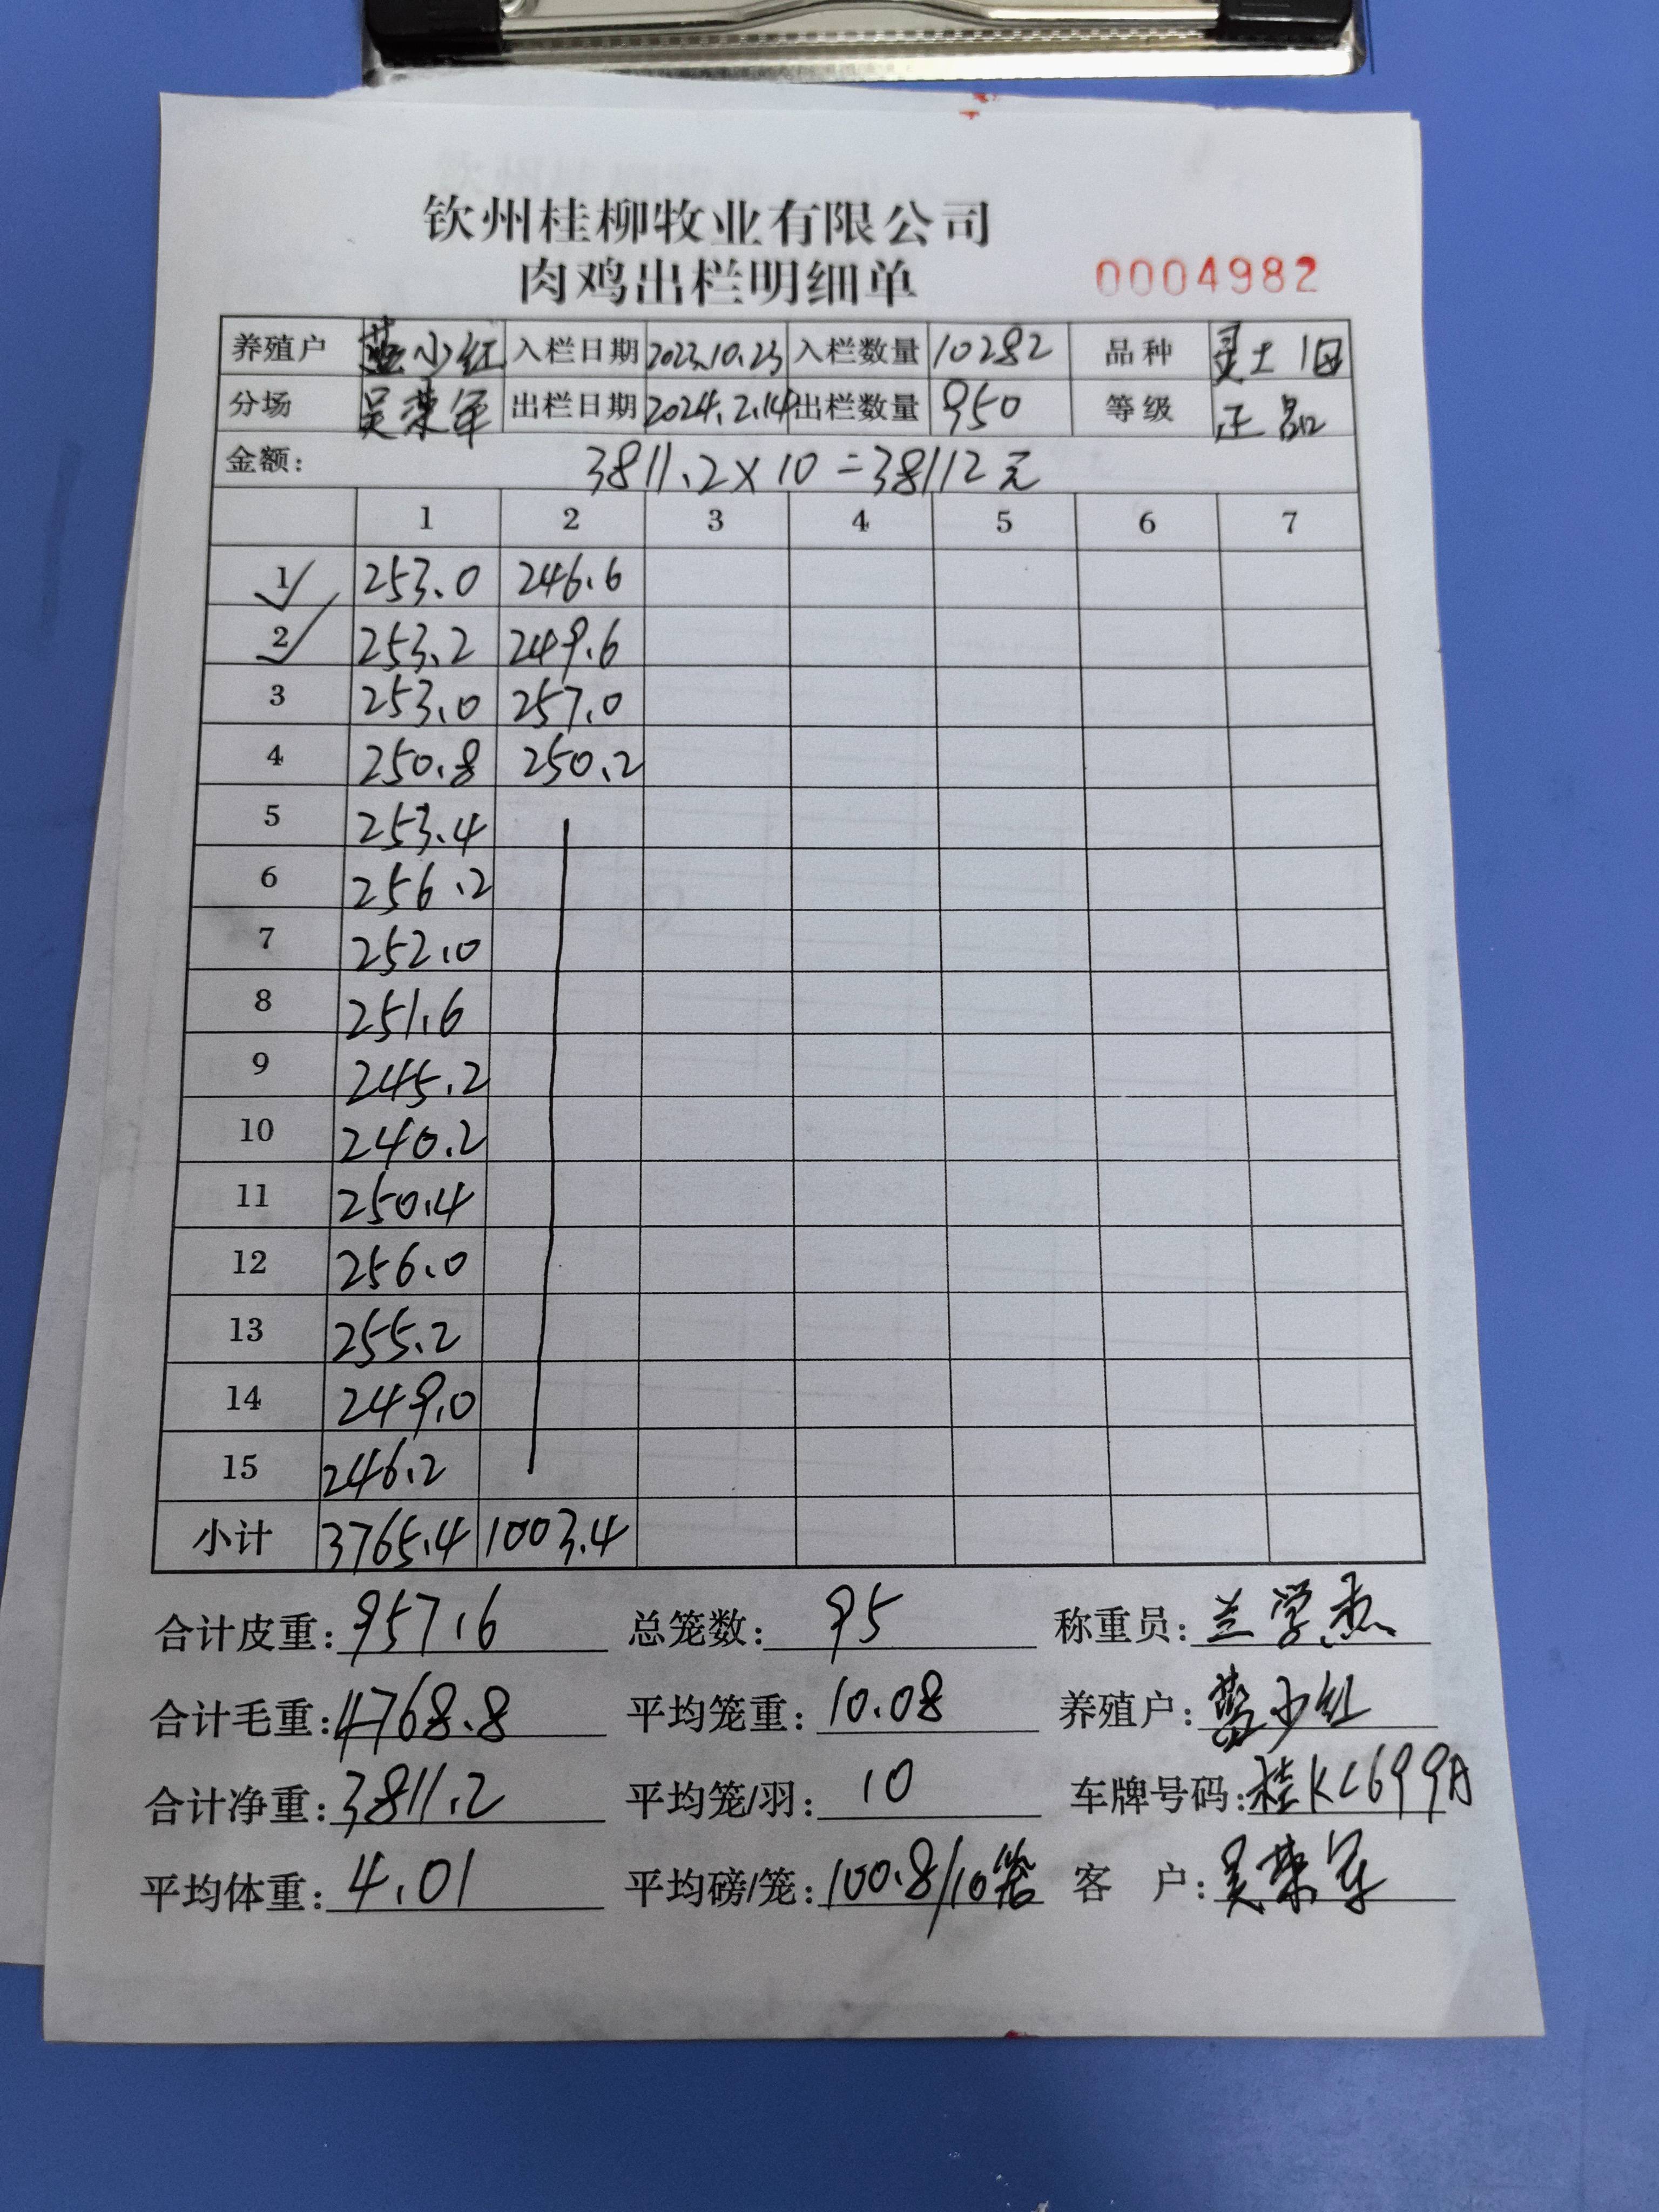 钦州桂柳牧业有限公司
肉鸡出栏明细单 0004982
养殖户 蓝小红 入栏日期 2023.10.23 入栏数量 10282 品种 灵土1母
分场 吴荣军 出栏日期 2024.2.14 出栏数量 950 等级 正品
金额: 3811.2×10=38112元
1 2 3 4 5 6 7
1 253.0 246.6
2 253.2 249.6
3 253.0 257.0
4 250.8 250.2
5 253.4
6 256.2
7 252.0
8 251.6
9 245.2
10 240.2
11 250.4
12 256.0
13 255.2
14 249.0
15 246.2
小计 3765.4 1003.4
合计皮重: 957.6 总笼数: 95 称重员: 兰学杰
合计毛重: 4768.8 平均笼重: 10.08 养殖户: 蓝小红
合计净重: 3811.2 平均笼/羽: 10 车牌号码: 桂KC699A
平均体重: 4.01 平均磅/笼: 100.8/10笼 客户: 吴荣军